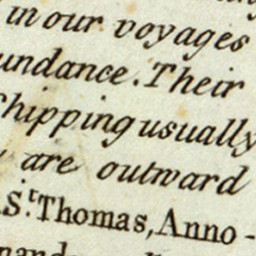 in our voyages
undance. Their
Shipping usually
are outward
St. Thomas, Anno -